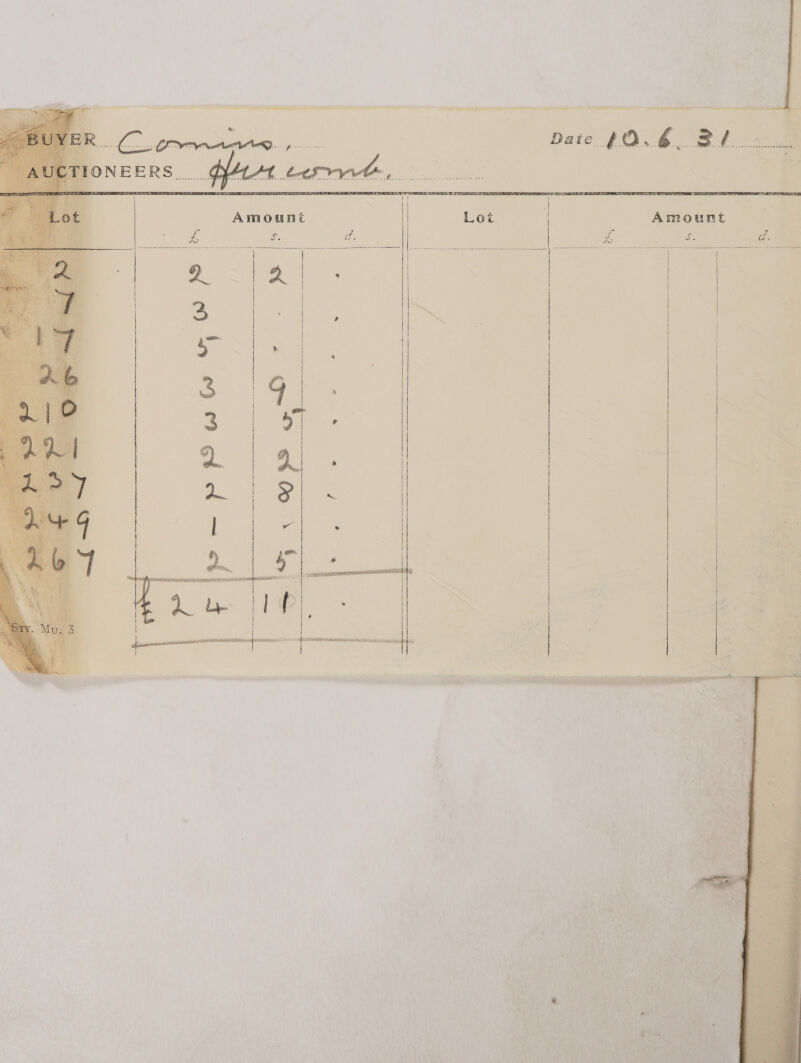 BUYER Date 10. 6. 31
AUCTIONEERS
Lot Amount Lot Amount
£ s. d. £ s. d.
2 2 2 .
7 3 . .
17 5 . .
26 3 9 .
210 3 5 .
221 2 2 .
237 2 8 -
249 1 - .
267 2 5 .
£ 24 11 . -
Sty. Mu. 3